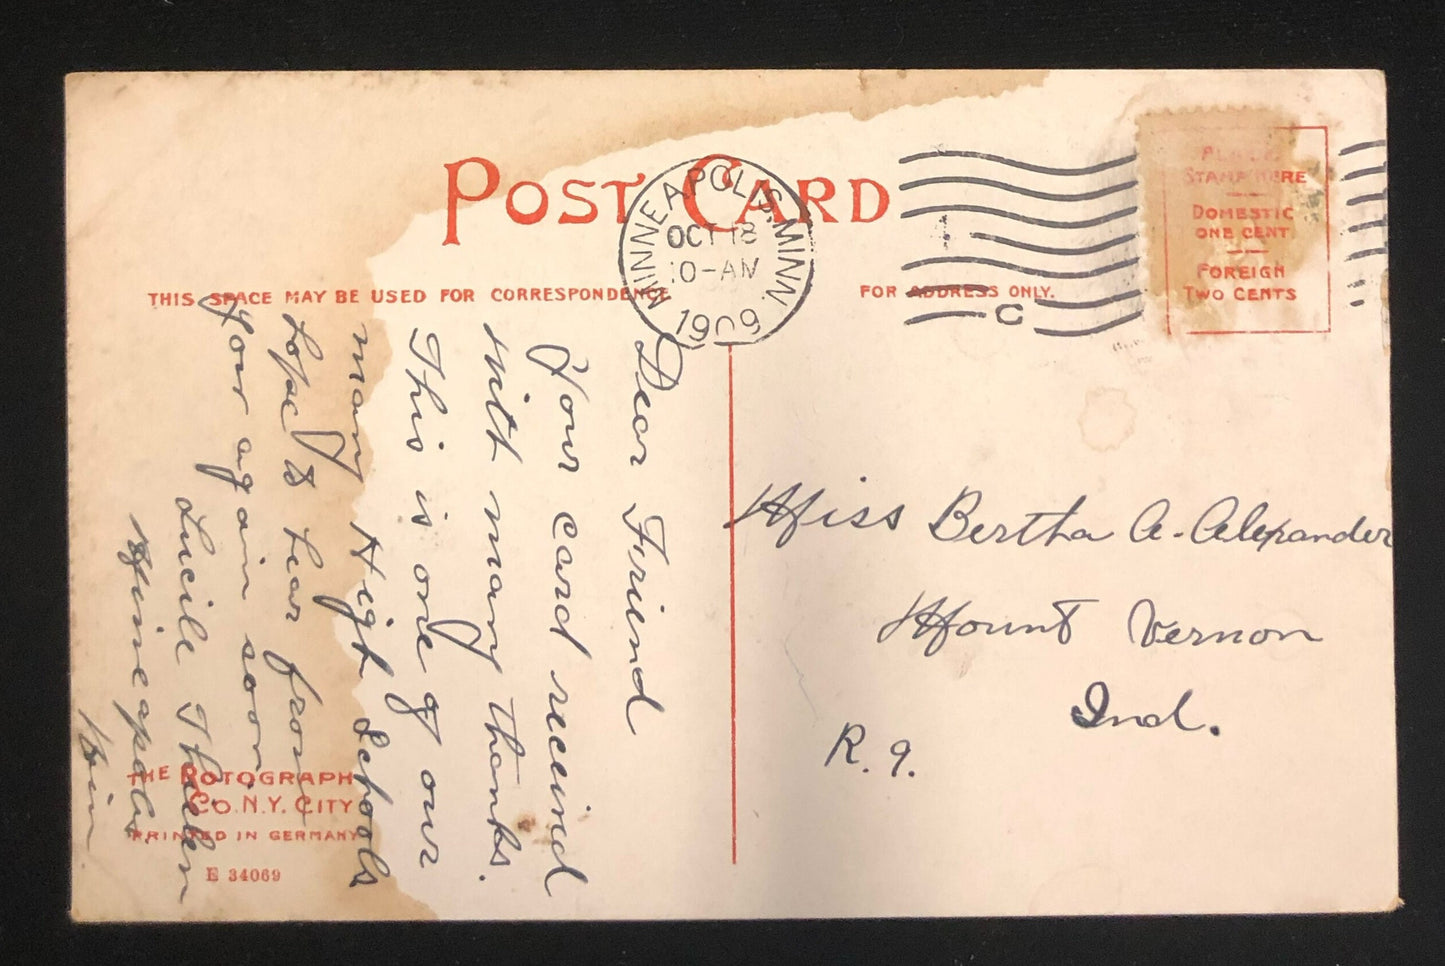 POST CARD
MINNEAPOLIS, MINN.
OCT 18
10-AM
1909
C
PLACE
STAMP HERE
DOMESTIC
ONE CENT
FOREIGN
TWO CENTS
THIS SPACE MAY BE USED FOR CORRESPONDENCE
FOR ADDRESS ONLY.
Dear Friend
Your card receind
with many thanks.
This is one of our
many High Schools
to hear from
your again soon
Lucile
Mineapolis
Minn
Miss Bertha A. Alexander
Mount Vernon
Ind.
R. 9.
THE ROTOGRAPH
CO. N.Y. CITY
PRINTED IN GERMANY
E 34069